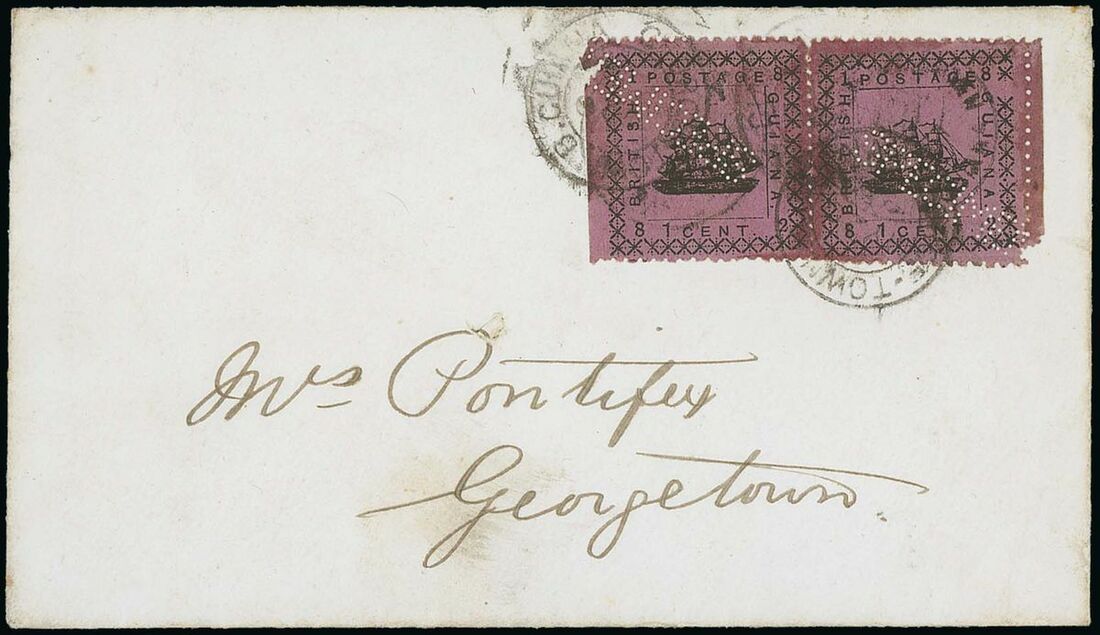 1 POSTAGE 8
BRITISH
GUIANA.
8 1 CENT. 2
1 POSTAGE 8
BRITISH
GUIANA.
8 1 CENT. 2
B. GUIANA
TOWN
Mrs Pontifex
Georgetown.